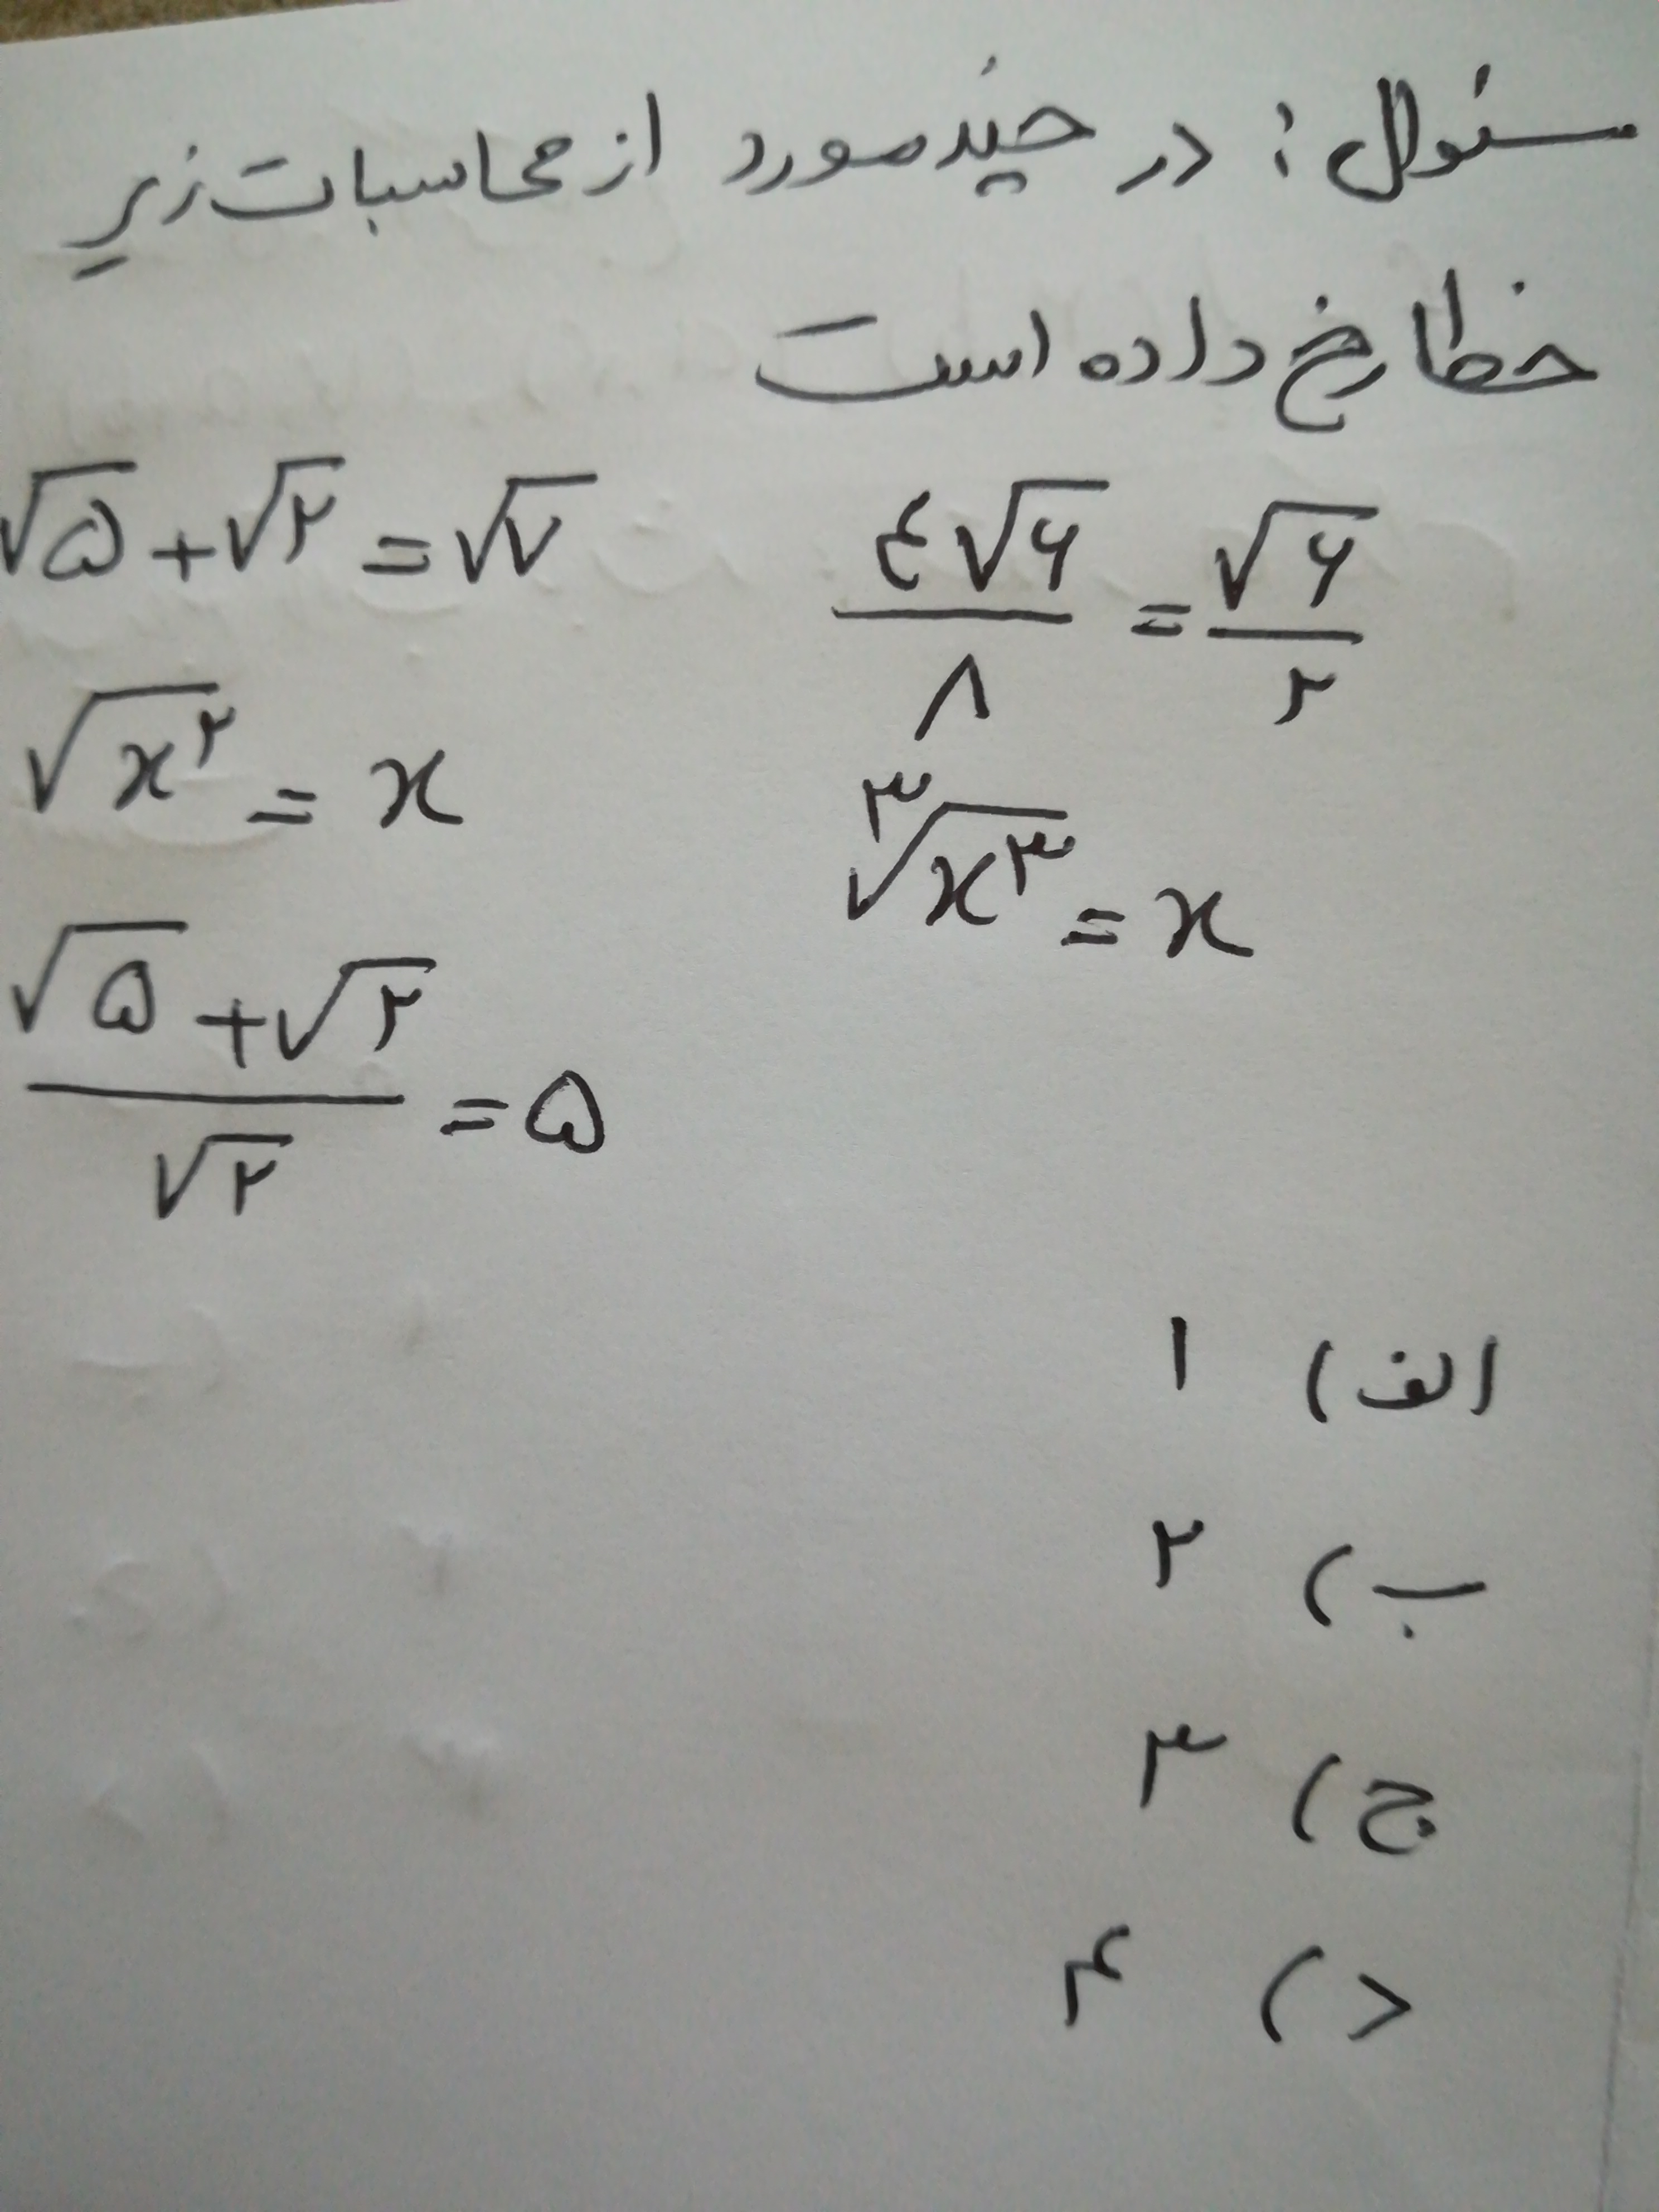 سئوال : در چند مورد از محاسبات زیر
خطا رخ داده است
√۵ + √۲ = √۷
۴√۶ / ۸ = √۶ / ۲
√x^۲ = x
۳√x^۳ = x
√۵ + √۲ / √۲ = ۵
الف) ۱
ب) ۲
ج) ۳
د) ۴